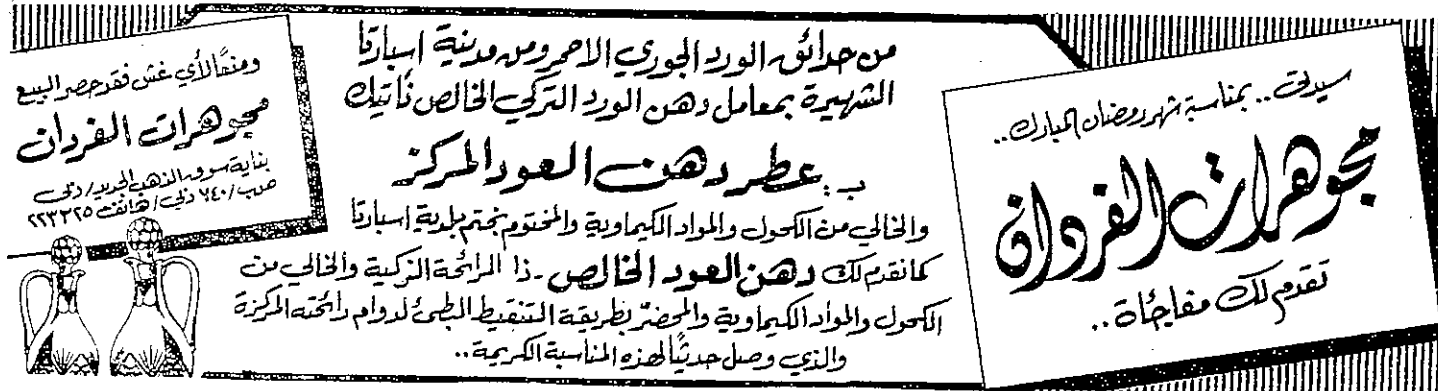 سيدتي.. بمناسبة شهر رمضان المبارك..
مجوهرات الفردان
تقدم لك مفاجأة..
من حدائق الورد الجوري الاحمر ومن مدينة اسبارتا
الشهيرة بمعامل دهن الورد التركي الخالص نأتيك
بـ: عطر دهن العود المركز
والخالي من الكحول والمواد الكيماوية والمختوم بختم بلدية اسبارتا
كما نقدم لك دهن العود الخالص - ذا الرائحة الزكية والخالي من
الكحول والمواد الكيماوية والمحضر بطريقة التنقيط البطئ لدوام رائحته المركزة
والذي وصل حديثاً لهذه المناسبة الكريمة..
ومنعاً لأي غش فقد حصر البيع
مجوهرات الفردان
بناية سوق الذهب الجديد / دبي
ص.ب / ٧٤٠ دبي / هاتف ٢٢٣٣٢٥